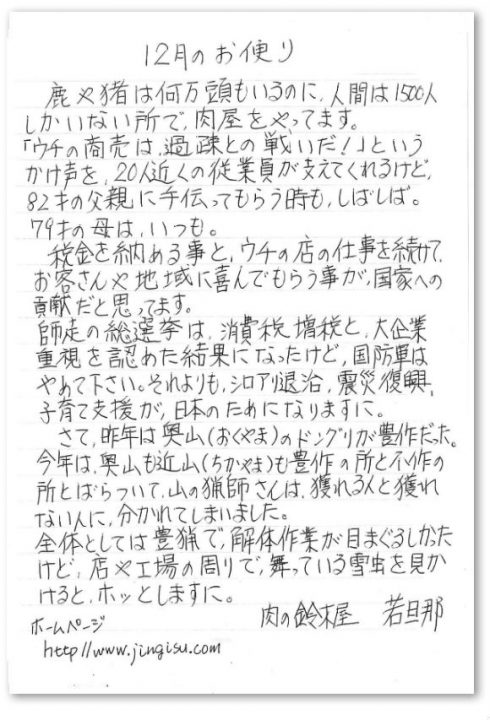 12月のお便り
鹿や猪は何万頭もいるのに、人間は1500人
しかいない所で、肉屋をやってます。
「ウチの商売は、過疎との戦いだ！」という
かけ声を、20人近くの従業員が支えてくれるけど、
82才の父親に手伝ってもらう時も、しばしば。
79才の母は、いつも。
税金を納める事と、ウチの店の仕事を続けて、
お客さんや地域に喜んでもらう事が、国家への
貢献だと思ってます。
師走の総選挙は、消費税増税と、大企業
重視を認めた結果になったけど、国防軍は
やめて下さい。それよりも、シロアリ退治、震災復興、
子育て支援が、日本のためになりますに。
さて、昨年は奥山(おくやま)のドングリが豊作だった。
今年は、奥山も近山(ちかやま)も豊作の所と不作の
所とばらついて、山の猟師さんは、獲れる人と獲れ
ない人に、分かれてしまいました。
全体としては豊猟で、解体作業が目まぐるしかった
けど、店や工場の周りで、舞っている雪虫を見か
けると、ホッとしますに。
肉の鈴木屋 若旦那
ホームページ
http://www.jingisu.com